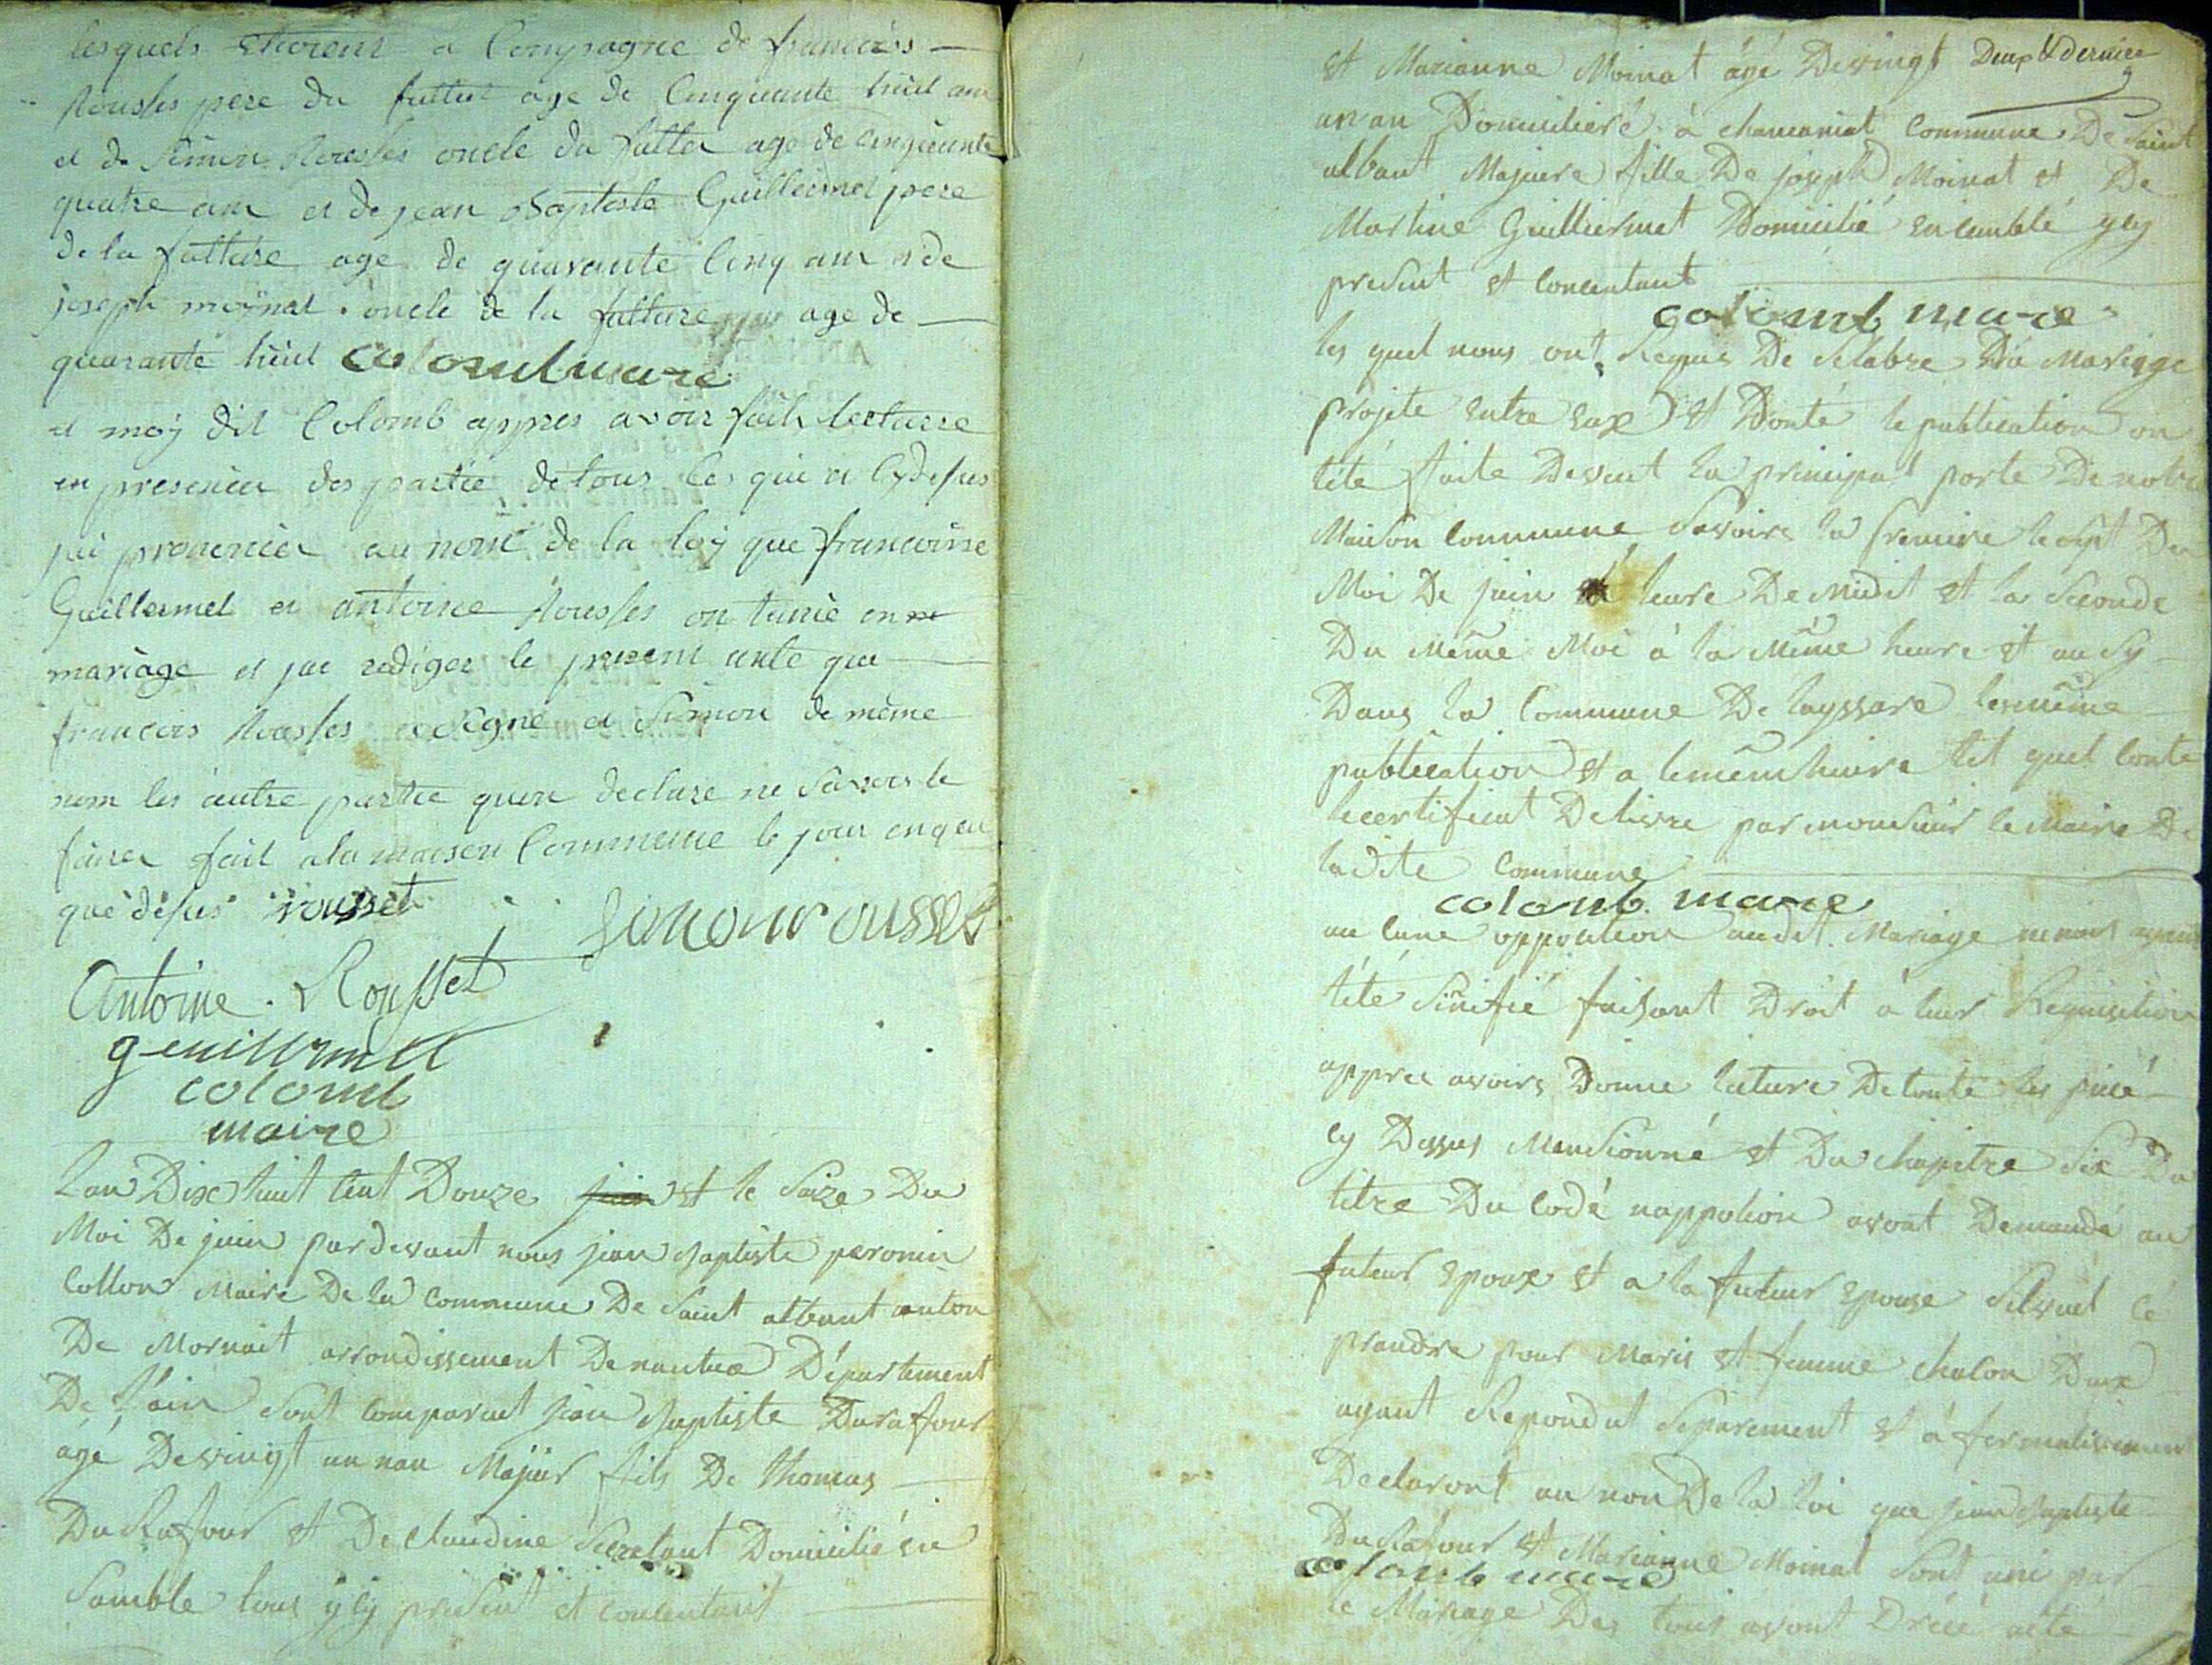 lesquels etoient a Compagnie de francois
Rousses pere du futtur age de Cinquante huit ans
et de Simon Rousses oncle du futter age de cinquante
quatre ans et de jean Baptiste Guillermet pere
de la futture age de quarante Cinq ans et de
joseph moynat oncle de la futture age de
quarante huit colomb maire
et moy dit Colomb appres avoir fait lecturre
en presencer des partie de tous ces qui a Cy desus
jai prononcer au nom de la loy que francoisse
Guillermet et antoine Rousses on tunie en
mariage et jai rediger le present acte que
francois Rousses a Signé et Simon de même
non les autre partie quon declare ne Savoir le
fairer fait a la maison Commune le jour en q en
que desus rousset
Simon rousset
Antoine . Rousset
guillermet
colomb
maire
Lan Dix huit Cent Douze juin et le Saize Du
Moi De juin par devant nous jean Baptiste peronin
Collon Maire De la Commune De Saint alban canton
De Mornait arrondissement De nantua Département
De l'ain Sont Comparut jean Baptiste Durafour
agé De vingt un nan Majeur fils De thomas
Du Rafour et De Claudine Secretant Domicilié en
Samble tous y cy present et concentant
Deux & dernier
et Marianne Moinat âgé De vingt
un an Domicilieré à chamaniat Commune De Saint
albant Majeure fille De joseph Moinat et De
Martine Guilliermet Domicilié ensemblé y cy
present et concentant
colomb mare
les quel nous ont Requis De Selabre Du Mariage
projete entre eux et Donté le publication on
tété faite Devent la principal porte De notre
Maison Commune Savoire la premiere le sept Du
Moi De juin leure De Midit et la Seconde
Du Même Moi à la Même heure et au Sy
Dans la Commune De leyssare les même
publication et a lemem heure tel quel Conte
le certificat Delivre par monsieur le Maire De
ladite Commune
colomb mare
au cune oppontion audit Mariage ne nous ayant
tété Sinifié faisant Droit à leur Requisition
appres avoire Donne lecture De toute les piecé
cy Dessus Mensionné et Du chapitre Six Du
titre Du Codé nappolion avont Demandé au
futeur epoux et a la futeur epouse Silveut Cé
prandre pour Maris et femme chalon Deux
ayant Repondut Séparement et a fermativement
Declaront au non De la loi que jean Baptiste
Du Rafour et Marianne Moinat Sont uni par
colomb mare
le Mariage Des tous avont Dressé acté